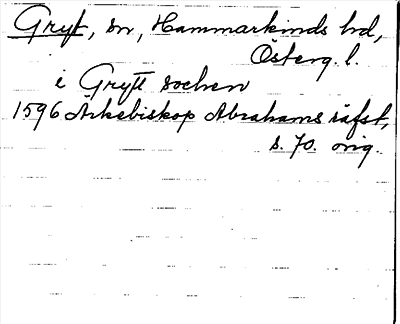 Gryt, sn, Hammarkinds hd,
Österg. l.
i Grytt sochen
1596 Ärkebiskop Abrahams räfst,
s. 70. orig.